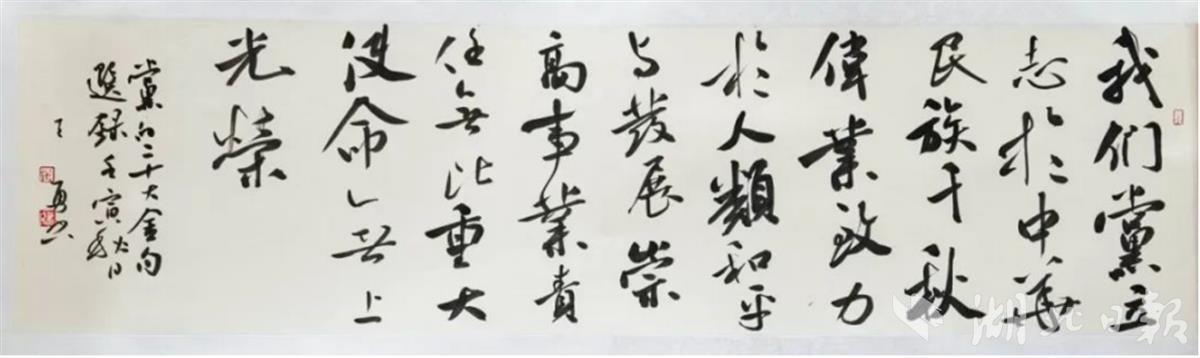 我们黨立
志於中華
民族千秋
偉業致力
於人類和平
与發展崇
高事業責
任無比重大
使命無上
光榮
黨的二十大金句
選録壬寅秋日
湖北日報